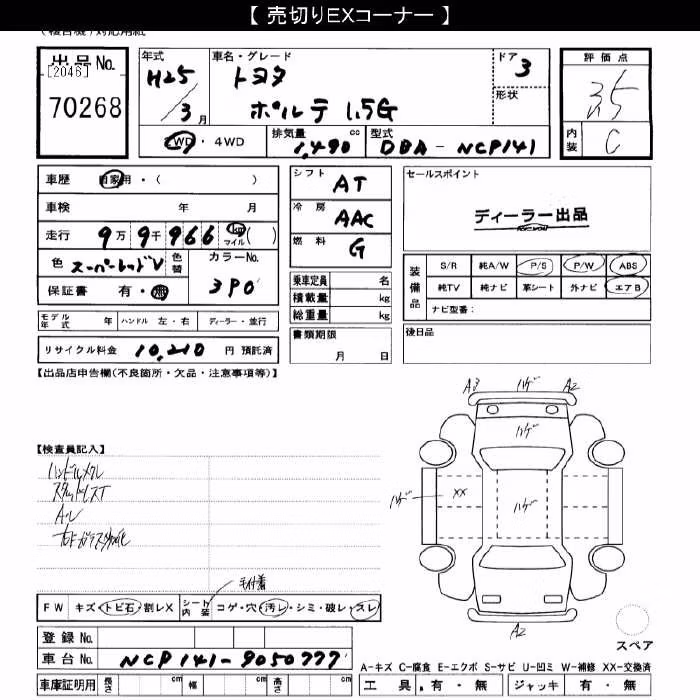 【 売切りEXコーナー 】
出品No.
[2046]
70268
年式
H25/3月
車名・グレード
トヨタ
ポルテ 1.5G
ドア
3
形状
評価点
3.5
内装
C
2WD・4WD
排気量 cc
1,490
型式
DBA-NCP141
車歴 自家用・( )
車検 年 月
走行 9万9千966 km マイル( )
色 スーパーレッドV
色替
カラーNo.
3P0
保証書 有・無
シフト AT
冷房 AAC
燃料 G
乗車定員 名
積載量 kg
総重量 kg
書類期限
月 日
セールスポイント
ディーラー出品
装備品
S/R 純A/W P/S P/W ABS
純TV 純ナビ 革シート 外ナビ エアB
ナビ型番:
後日品
モデル年式 年 ハンドル 左・右 ディーラー・並行
リサイクル料金 10,210 円 預託済
【出品店申告欄(不良箇所・欠品・注意事項等)】
A3 ハゲ A2
ハゲ
【検査員記入】
ハンドルスレ
ハゲ XX ハゲ
毛付着
FW キズ・トビ石・割レX シート内装 コゲ・穴・汚レ・シミ・破レ・スレ
A2
スペア
登録No.
車台No. NCP141-9050777
A-キズ C-腐食 E-エクボ S-サビ U-凹ミ W-補修 XX-交換済
車庫証明用 長さ cm 幅 cm 高さ cm
工具 . 有・無 ジャッキ 有・無